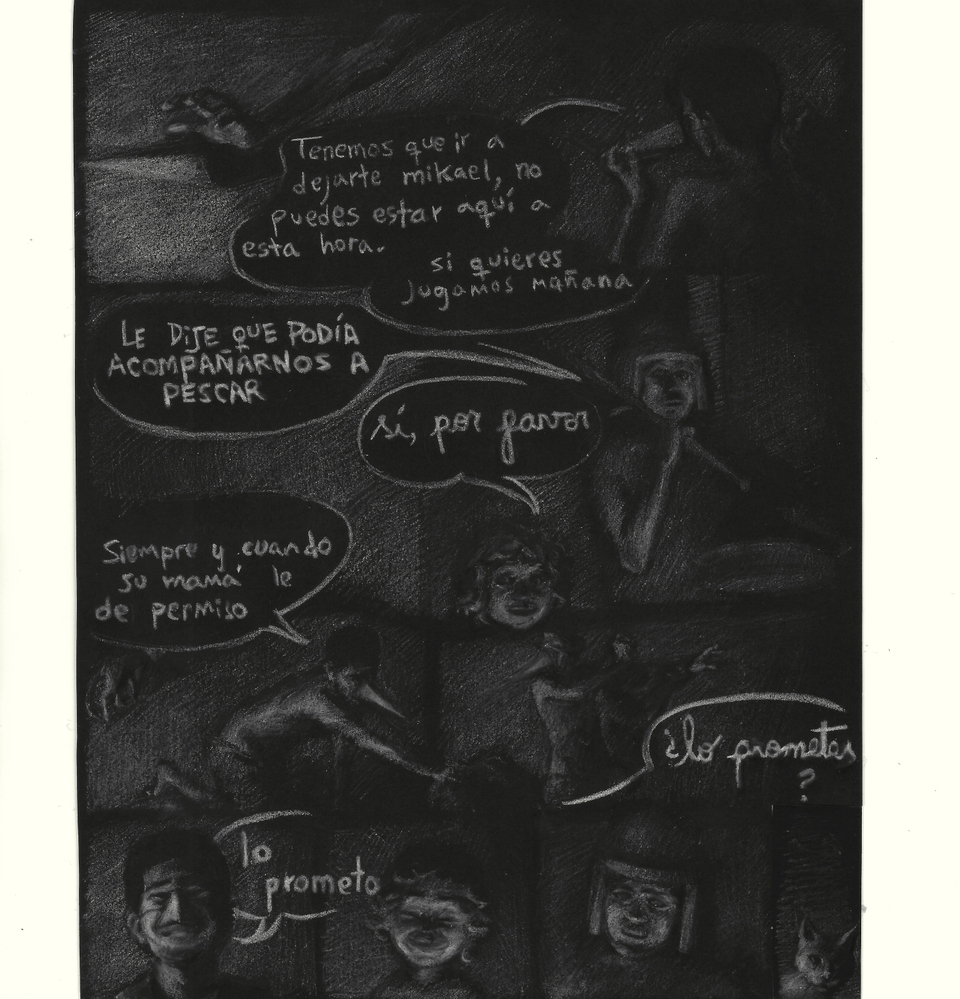 Tenemos que ir a
dejarte mikael, no
puedes estar aquí a
esta hora.
si quieres
jugamos mañana
LE DIJE QUE PODÍA
ACOMPAÑARNOS A
PESCAR
sí, por favor
Siempre y cuando
su mamá le
de permiso
¿lo prometes
?
lo
prometo